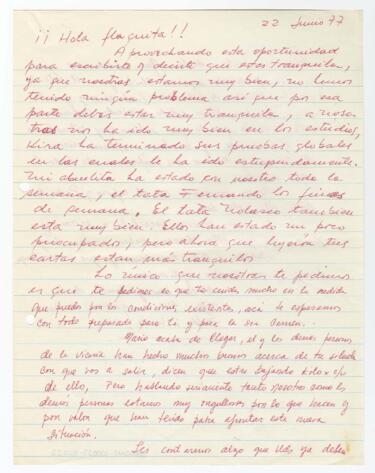 22 Junio 77
¡¡ Hola flaquita!!
Aprovechando esta oportunidad
para escribirte y decirte que estes tranquila,
ya que nosotras estamos muy bien, no hemos
tenido ningún problema así que por esa
parte debes estar muy tranquila, a noso-
tras nos ha ido muy bien en los estudios,
Kira ha terminado sus pruebas globales
en las cuales le ha ido estupendamente.
Mi abuelita ha estado con nostro toda la
semana, el tata Fernando los fines
de semana. El tata Nolasco tambien
esta muy bien. Ellos han estado un poco
preocupados; pero ahora que leyeron tus
cartas estan más tranquilos
Lo único que nosotras te pedimos
es que te cuides mucho en la medida
que puedas por las condiciones existentes, acá te esperamos
con todo preparado para ti y para la
Mario acaba de llegar, el y las demas personas
de la vicaria han hecho muchas bromas acerca de tu
con que vas a salir, dicen que estas bajando kilos
de ello, Pero hablando seriamente tanto nosotras como las
demás personas estamos muy orgullosas por lo que hacen y
por valor que han tenido para afrontar esta nueva
situación.
Les contaremos algo que Uds ya deben